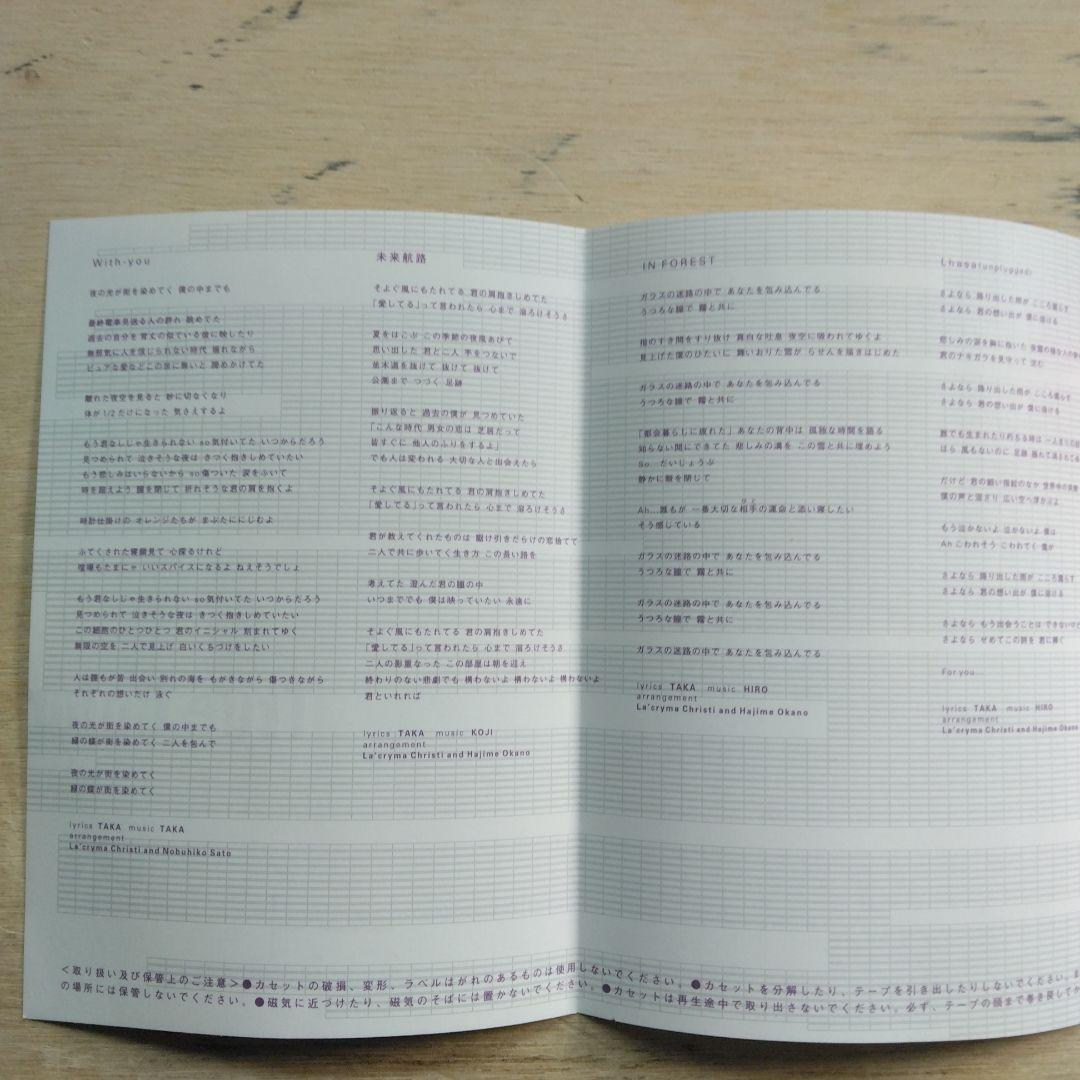 With-you
夜の光が街を染めてく 僕の中までも
最終電車見送る人の群れ 眺めてた
過去の自分を 背丈の似ている彼に映したり
無邪気に人を信じられない時代 揺れながら
ピュアな愛などこの世に無いと 諦めかけてた
離れた夜空を見ると 妙に切なくなり
体が 1/2 だけになった 気さえするよ
もう君なしじゃ生きられない so気付いてた いつからだろう
見つめられて 泣きそうな夜は きつく抱きしめていたい
もう悲しみはいらないから so傷ついた 涙をふいて
時を超えよう 瞳を閉じて 折れそうな君の肩を抱くよ
時計仕掛けの オレンジたちが まぶたににじむよ
ふてくされた寝顔見て 心探るけれど
喧嘩もたまにゃ いいスパイスになるよ ねえそうでしょ
もう君なしじゃ生きられない so気付いてた いつからだろう
見つめられて 泣きそうな夜は きつく抱きしめていたい
この細胞のひとつひとつ 君のイニシャル 刻まれてゆく
無限の空を 二人で見上げ 白いくちづけをしたい
人は誰もが皆 出会い 別れの海を もがきながら 傷つきながら
それぞれの想いだけ 泳ぐ
夜の光が街を染めてく 僕の中までも
緑の蝶が街を染めてく 二人を包んで
夜の光が街を染めてく
緑の蝶が街を染めてく
lyrics TAKA music TAKA
arrangement
La'cryma Christi and Nobuhiko Sato
未来航路
そよぐ風にもたれてる 君の肩抱きしめてた
「愛してる」って言われたら 心まで 溶ろけそうさ
夏をはこぶ この季節の夜風あびて
思い出した 君と二人 手をつないで
並木道を抜けて 抜けて 抜けて
公園まで つづく 足跡
振り返ると 過去の僕が 見つめていた
「こんな時代 男女の恋は 芝居だって
皆すぐに 他人のふりをするよ」
でも人は変われる 大切な人と出会えたら
そよぐ風にもたれてる 君の肩抱きしめてた
「愛してる」って言われたら 心まで 溶ろけそうさ
君が教えてくれたものは 駆け引きだらけの恋捨てて
二人で共に歩いてく生き方 この長い路を
考えてた 澄んだ君の瞳の中
いつまででも 僕は映っていたい 永遠に
そよぐ風にもたれてる 君の肩抱きしめてた
「愛してる」って言われたら 心まで 溶ろけそうさ
二人の影重なった この部屋は朝を迎え
終わりのない悲劇でも 構わないよ 構わないよ 構わないよ
君といれれば
lyrics TAKA music KOJI
arrangement
La'cryma Christi and Hajime Okano
IN FOREST
ガラスの迷路の中で あなたを包み込んでる
うつろな瞳で 霧と共に
指のすき間をすり抜け 真白な吐息 夜空に吸われてゆくよ
見上げた僕のひたいに 舞いおりた雪が らせんを描きはじめた
ガラスの迷路の中で あなたを包み込んでる
うつろな瞳で 霧と共に
「都会暮らしに疲れた」 あなたの背中は 孤独な時間を語る
知らない間にできてた 悲しみの溝を この雪と共に埋めよう
So だいじょうぶ
静かに眼を閉じて
Ah…誰もが 一番大切な相手の運命と添い寝したい
そう感じている
ガラスの迷路の中で あなたを包み込んでる
うつろな瞳で 霧と共に
ガラスの迷路の中で あなたを包み込んでる
うつろな瞳で 霧と共に
ガラスの迷路の中で あなたを包み込んでる
lyrics TAKA music HIRO
arrangement
La'cryma Christi and Hajime Okano
Lhasa(unplugged)
さよなら 降り出した雨が こころ濡らす
さよなら 君の想い出が 僕に溶ける
悲しみの涙を胸に抱いた
君のナキガラを見守って 沈む
さよなら 降り出した雨が こころ濡らして
さよなら 君の想い出が 僕に溶ける
誰でも生まれたり朽ちる時は 一人きりの
ほら 風もないのに 足跡
だけど 君の細い指紋のなか 世界中の
僕の声と混ざり 広い空へ浮かぶよ
もう泣かないよ 泣かないよ 僕は
Ah こわれそう こわれてく 僕が
さよなら 降り出した雨が こころ濡らす
さよなら 君の想い出が 僕に溶ける
さよなら もう出会うことは できないけど
さよなら せめてこの詩を 君に捧ぐ
For you…
lyrics TAKA music HIRO
arrangement
La'cryma Christi and Hajime Okano
<取り扱い及び保管上のご注意>●カセットの破損、変形、ラベルはがれのあるものは使用しないでください。●カセットを分解したり、テープを引き出したりしないでください。
の場所には保管しないでください。●磁気に近づけたり、磁気のそばには置かないでください。●カセットは再生途中で取り出さないでください。必ず、テープの頭まで巻き戻してか